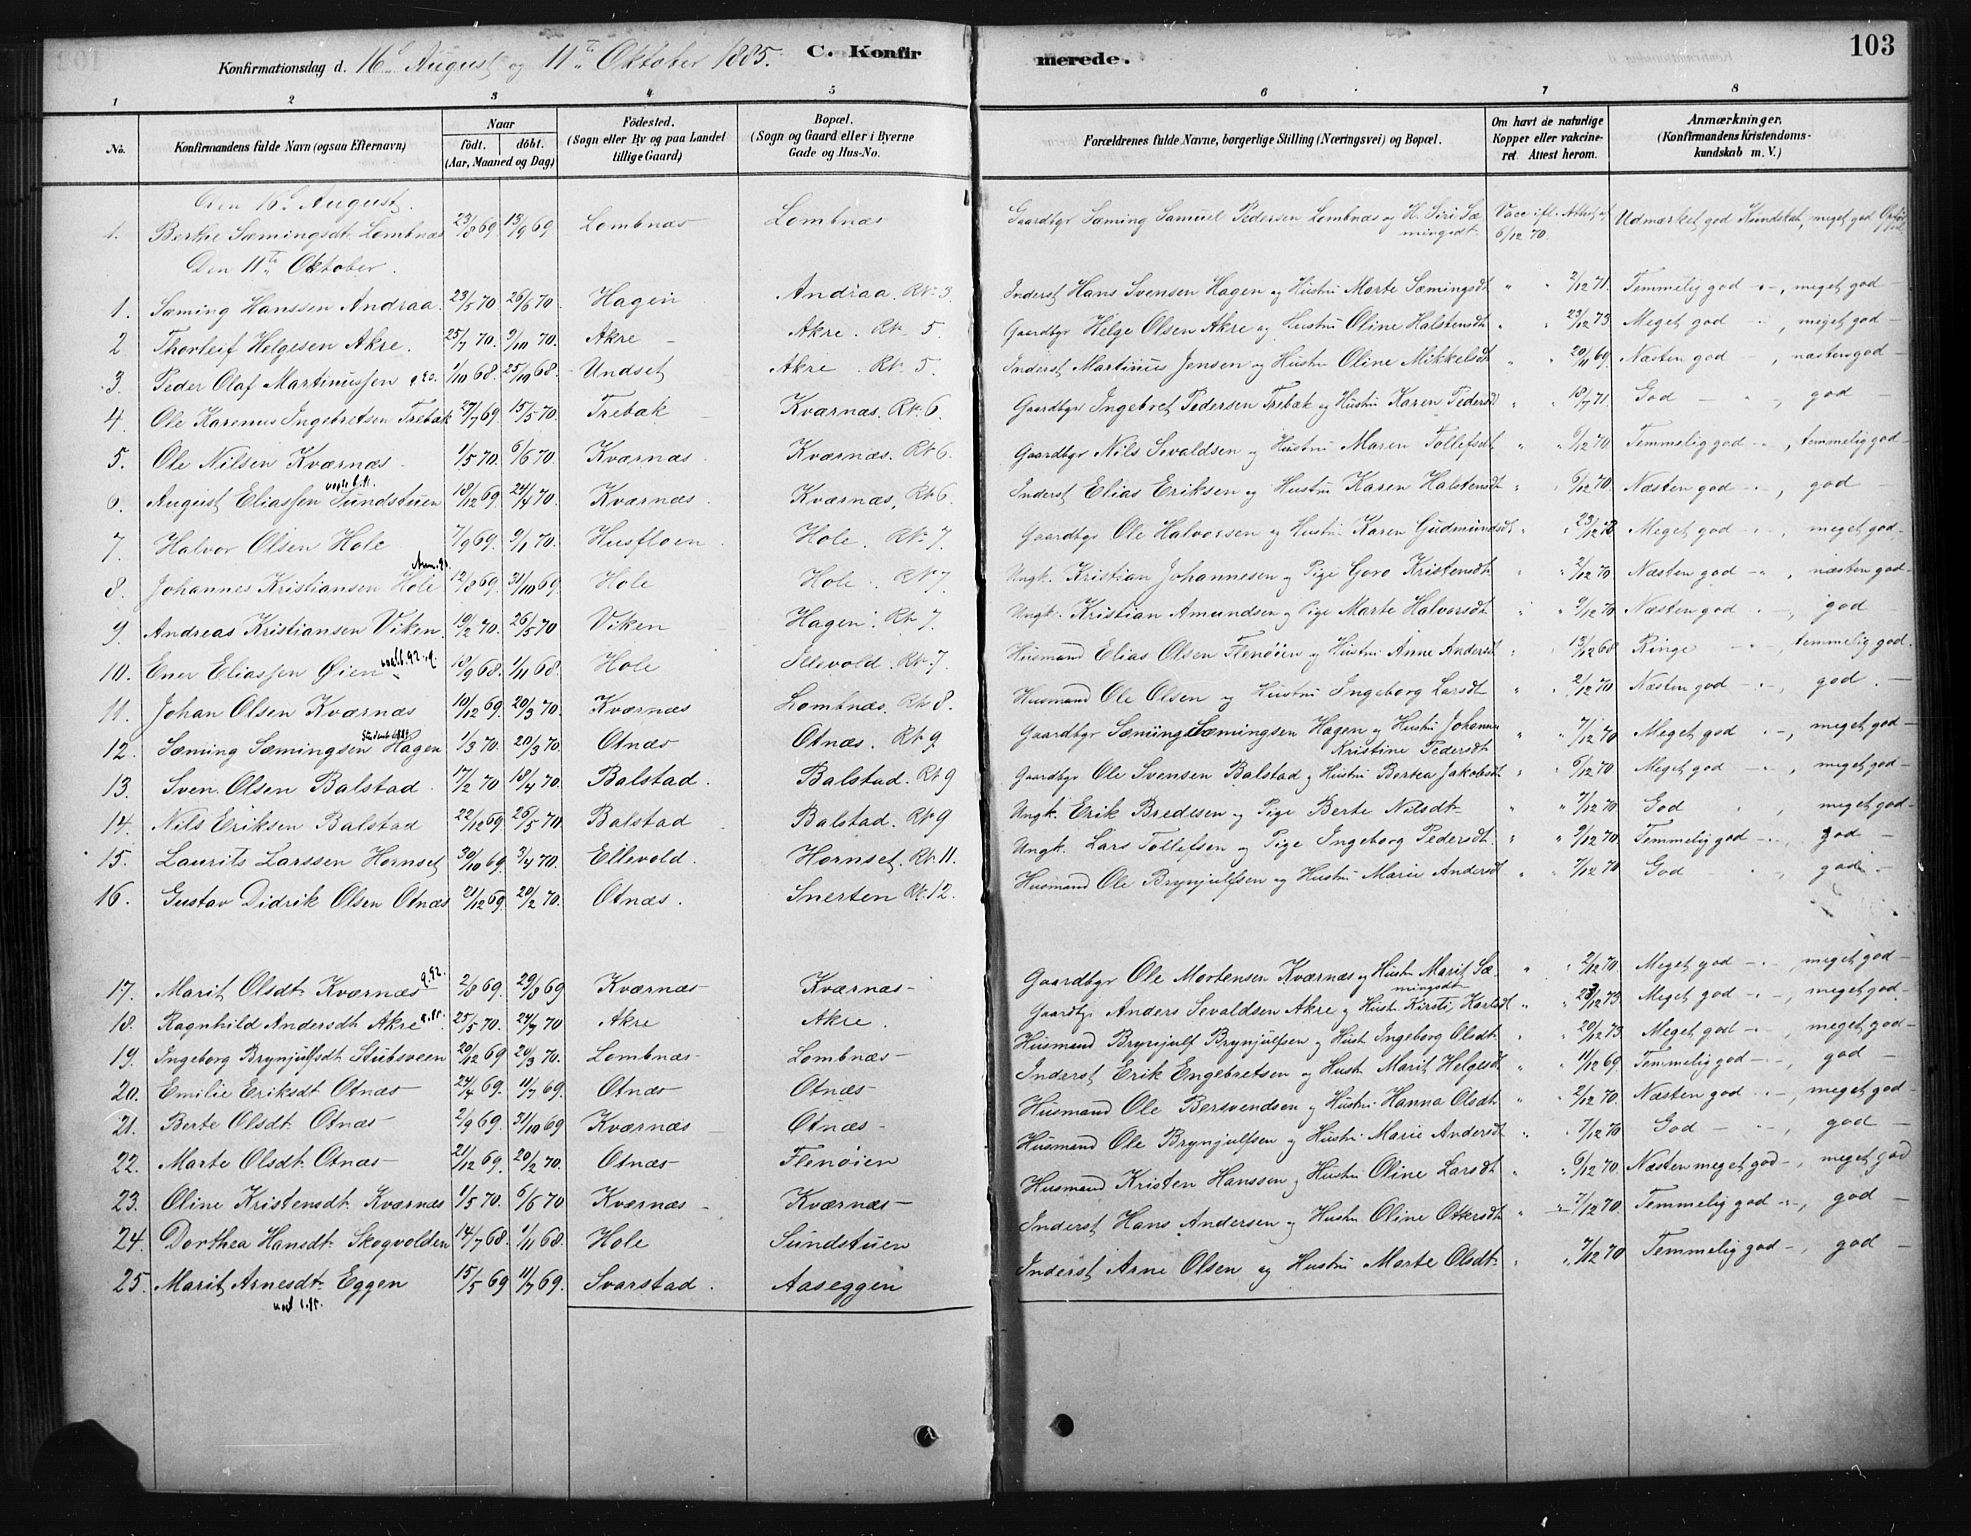 103
Konfirmationsdag d. 16de August og 11te Oktober 1885. C. Konfirmerede.
1 2 3 4 5 6 7 8
No. Konfirmandens fulde Navn (ogsaa Efternavn) Naar født. døbt. (Aar, Maaned og Dag) Fødested. (Sogn eller By og paa Landet tillige Gaard) Bopæl. (Sogn og Gaard eller i Byerne Gade og Hus-No. Forældrenes fulde Navne, borgerlige Stilling (Næringsvei) og Bopæl. Om havt de naturlige Kopper eller vakcineret. Attest herom. Anmærkninger. (Konfirmandens Kristendomskundskab m. V.)
Den 16de August.
1. Berthe Sæmingsdt. Lombnæs 23/8 69 13/9 69 Lombnæs Lombnæs Gaardbgr Sæming Samuel Pedersen Lombnæs og H. Siri Sæmingsdt. Vacc. ifl. Attest af 6/12 70. Udmærket god Kundskab, meget god
Den 11te Oktober.
1. Sæming Hanssen Andraa. 23/5 70 26/6 70. Hagen Andraa. Rk. 3. Inderst Hans Svensen Hagen og Hustru Marte Sæmingsdt " " 2/12 71. Temmelig god - " -, meget god -
2 Thorleif Helgesen Akre. 25/7 70. 9/10 70. Akre - Akre. Rk. 5. Gaardbgr Helge Olsen Akre og Hustru Oline Halstensdt " " 23/12 73. Meget god " -, meget god -
3. Peder Olaf Martinussen 1/10 68. 25/10 68. Undset Akre. Rk. 5. Inderst Martinus Jensen og Hustru Oline Mikkelsdt " " 20/11 69. Næsten god , næsten god -
4. Ole Karenus Ingebretsen Trebæk 27/7 69 15/5 70. Trebæk Kværnæs. Rk. 6. Gaardbgr Ingebret Pedersen Trebæk og Hustru Karen Pedersdt " " 18/7 71. God - " -, god -
5. Ole Nilsen Kværnæs 1/5 70. 6/6 70. Kværnæs. Kværnæs. Rk. 6. Gaardbgr Nils Sevaldsen og Hustru Maren Tollefsdt " " 6/12 70. Temmelig god - " -, temmelig god -
6. August Eliassen Sundstuen 18/12 69. 24/4 70. Kværnæs Kværnæs, Rk. 6. Inderst Elias Eriksen og Hustru Karen Halstensdt " " 6/12 70. Næsten god - " -, god -
7. Halvor Olsen Hole 7/9 69. 9/1 70. Husfloen Hole. Rk. 7. Gaardbgr Ole Halvorsen og Hustru Karen Gudmundsdt " " 23/12 Meget god - " -, meget god -
8. Johannes Kristiansen Hole 12/8 69. 31/10 69. Hole Hole. Rk. 7. Ungk. Kristian Johannesen og Pige Goro Kristensdt " " 2/12 70. Næsten god - " , næsten god -
9. Andreas Kristiansen Viken. 19/2 70. 26/5 70 Viken Hagen. Rk. 7. Ungk. Kristian Amundsen og Pige Marte Halvorsdt " " 9/12 70. Næsten god - " -, god -
10. Ener Eliassen Øien 18/9 68. 1/11 68. Hole Illevold. Rk. 7. Husmand Elias Olsen Flenøien og Hustru Anne Andersdt " " 13/12 68 Ringe - " -, temmelig god -
11. Johan Olsen Kværnæs 10/12 69. 20/3 70. Kværnæs Lombnæs. Rk. 8. Husmand Ole Olsen og Hustru Ingeborg Larsdt " " 2/12 70 Næsten god - " -, god. -
12. Sæming Sæmingsen Hagen 1/3 70. 20/3 70. Otnæs Otnæs. Rk. 9. Gaardbgr Sæming Sæmingsen Hagen og Hustru Johanne Kristine Pedersdt " " 7/12 70 Meget god " -, meget god -
13. Sven Olsen Balstad 17/2 70 18/4 70. Balstad. Balstad. Rk. 9 Gaardbgr Ole Svensen Balstad og Hustru Bertea Jakobsdt " " 6/12 70 Meget god - " -, meget god -
14. Nils Eriksen Balstad 22/12 69. 26/5 70 Balstad Balstad. Rk. 9 Ungk. Erik Bredesen og Pige Berte Nilsdt " " 7/12 70 God , meget god -
15. Laurits Larssen Hornset 30/10 69. 3/4 70. Ellevold. Hornset. Rk. 11. Ungk. Lars Tollefsen og Pige Ingeborg Pedersdt. " " 9/12 70. Temmelig god - " -, god -
16. Gustav Didrik Olsen Otnæs 21/12 69. 20/2 70. Otnæs. Snerten Rk. 12. Husmand Ole Brynjulfsen og Hustru Marie Andersdt " " 7/12 70 God " , god -
17. Marit Olsdt. Kværnæs 2/8 69. 29/8 69 Kværnæs Kværnæs - Gaardbgr Ole Mortensen Kværnæs og Hustr. Marit Sæmingsdt " " 2/12 70. Meget god - " -, meget god -
18. Ragnhild Andersdt. Akre 25/5 70. 24/7 70 Akre Akre. Gaardbgr Anders Sevaldsen Akre og Hustr. Kirsti Karlsdt " " 23/12 73. Meget god - " -, meget god -
19. Ingeborg Brynjulfsdt. Stubsveen 20/12 69 20/3 70. Lombnæs Lombnæs - Husmand Brynjulf Brynjulfsen og Hust Ingeborg Olsdt. " " 20/12 73 Meget god - " -, meget god -
20. Emilie Eriksdt. Otnæs 24/4 69. 11/7 69. Otnæs Otnæs Inderst Erik Engebretsen og Hustr. Marit Helgesdt " " 11/12 69 Temmelig god - " -, god -
21. Berte Olsdt. Otnæs 2/9 69. 31/10 69 Kværnæs Otnæs - Husmand Ole Bersvendsen og Hustru Hanna Olsdt " " 2/12 70. Næsten god - " -, meget god -
22. Marte Olsdt. Otnæs 21/12 69. 20/2 70. Otnæs Flenøien Husmand Ole Brynjulfsen og Hustru Marie Andersdt " " 7/12 70 God - " -, god -
23. Oline Kristensdt. Kværnæs 1/5 70. 6/6 70 Kværnæs - Kværnæs - Husmand Kristen Hanssen og Hustru Oline Larsdt " " 6/12 70. Næsten meget god -, meget god
24. Dorthea Hansdt. Skogvolden 14/7 68. 1/11 68. Hole Sundstuen Inderst Hans Andersen og Hustru Oline Ottersdt " " 7/12 70. Temmelig god - " -, god -
25. Marit Arnesdt. Eggen 15/5 69 11/7 69. Svarstad. Aaseggen Inderst Arne Olsen og Hustru Marte Olsdt. " " 7/12 70 Temmelig god -, god -